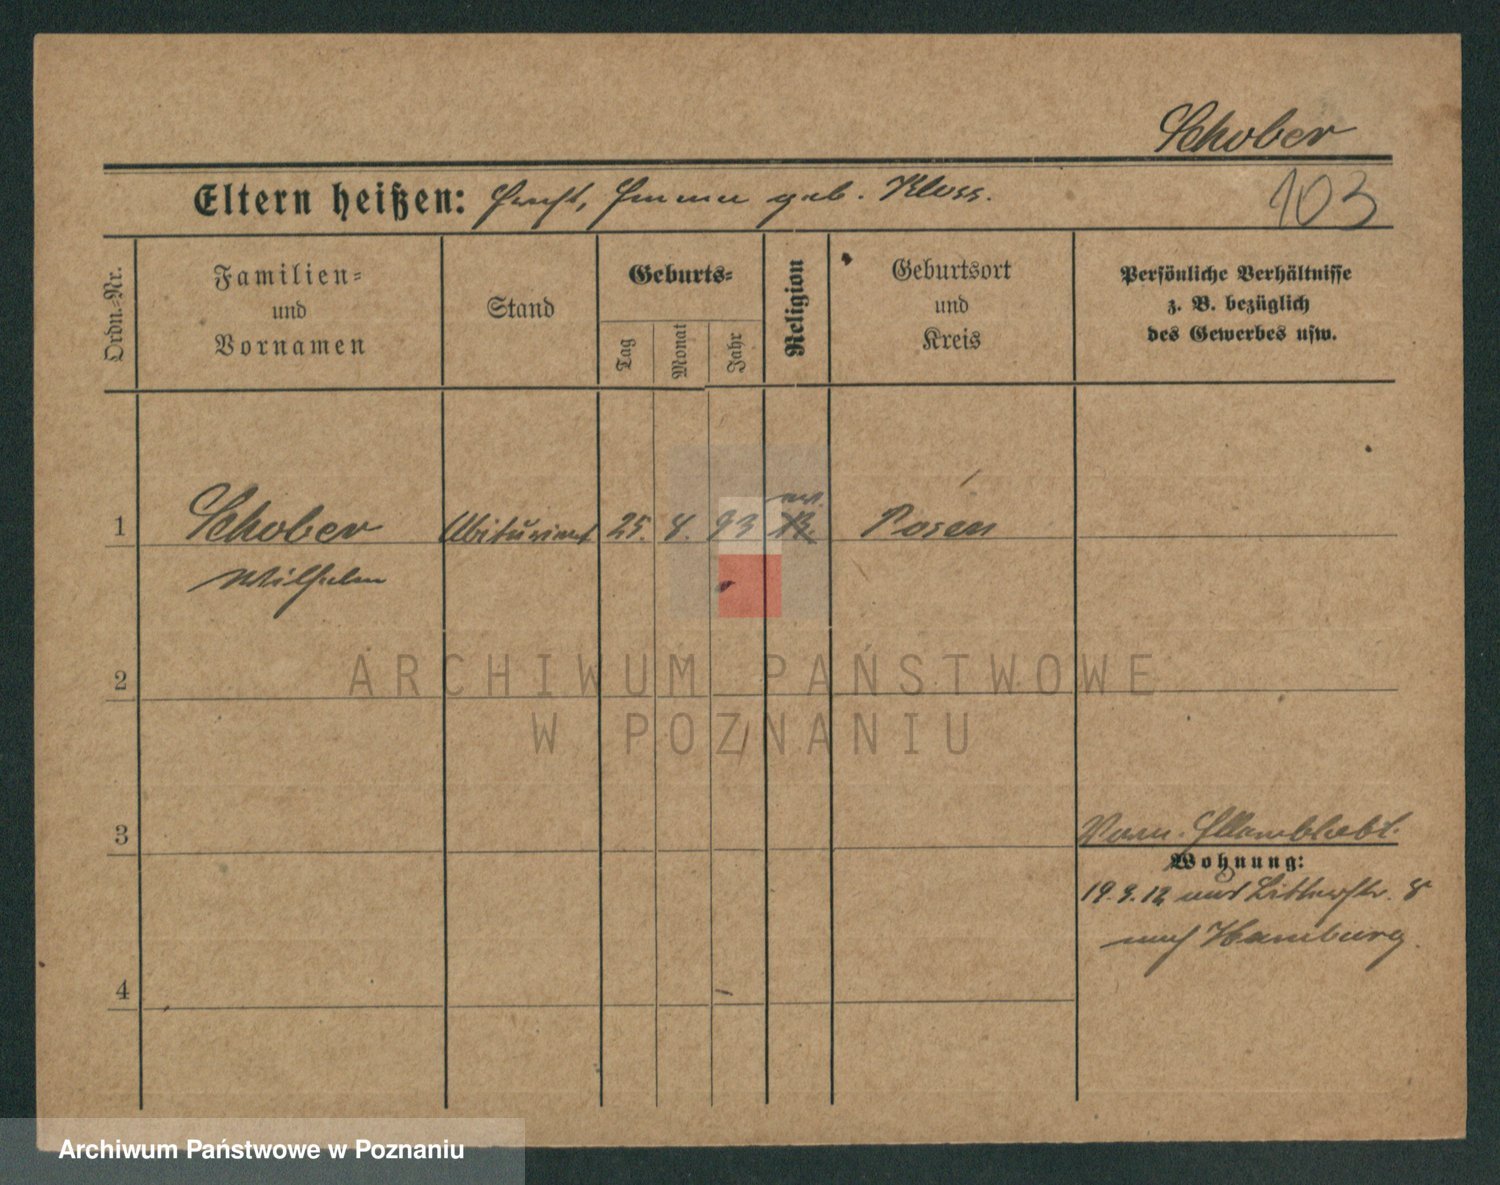 Schober
Eltern heißen: Ernst, Emma geb. Kloss.
103
Ordn.-Nr.
Familien-
und
Vornamen
Stand
Geburts-
Tag
Monat
Jahr
Religion
Geburtsort
und
Kreis
Persönliche Verhältnisse
z. B. bezüglich
des Gewerbes usw.
1
Schober
Abiturient
25. 4. 93
ev.
Posen
Wilhelm
2
3
4
Wohnung:
19. 9. 12 aus
nach Hamburg.
ARCHIWUM PAŃSTWOWE
W POZNANIU
Archiwum Państwowe w Poznaniu